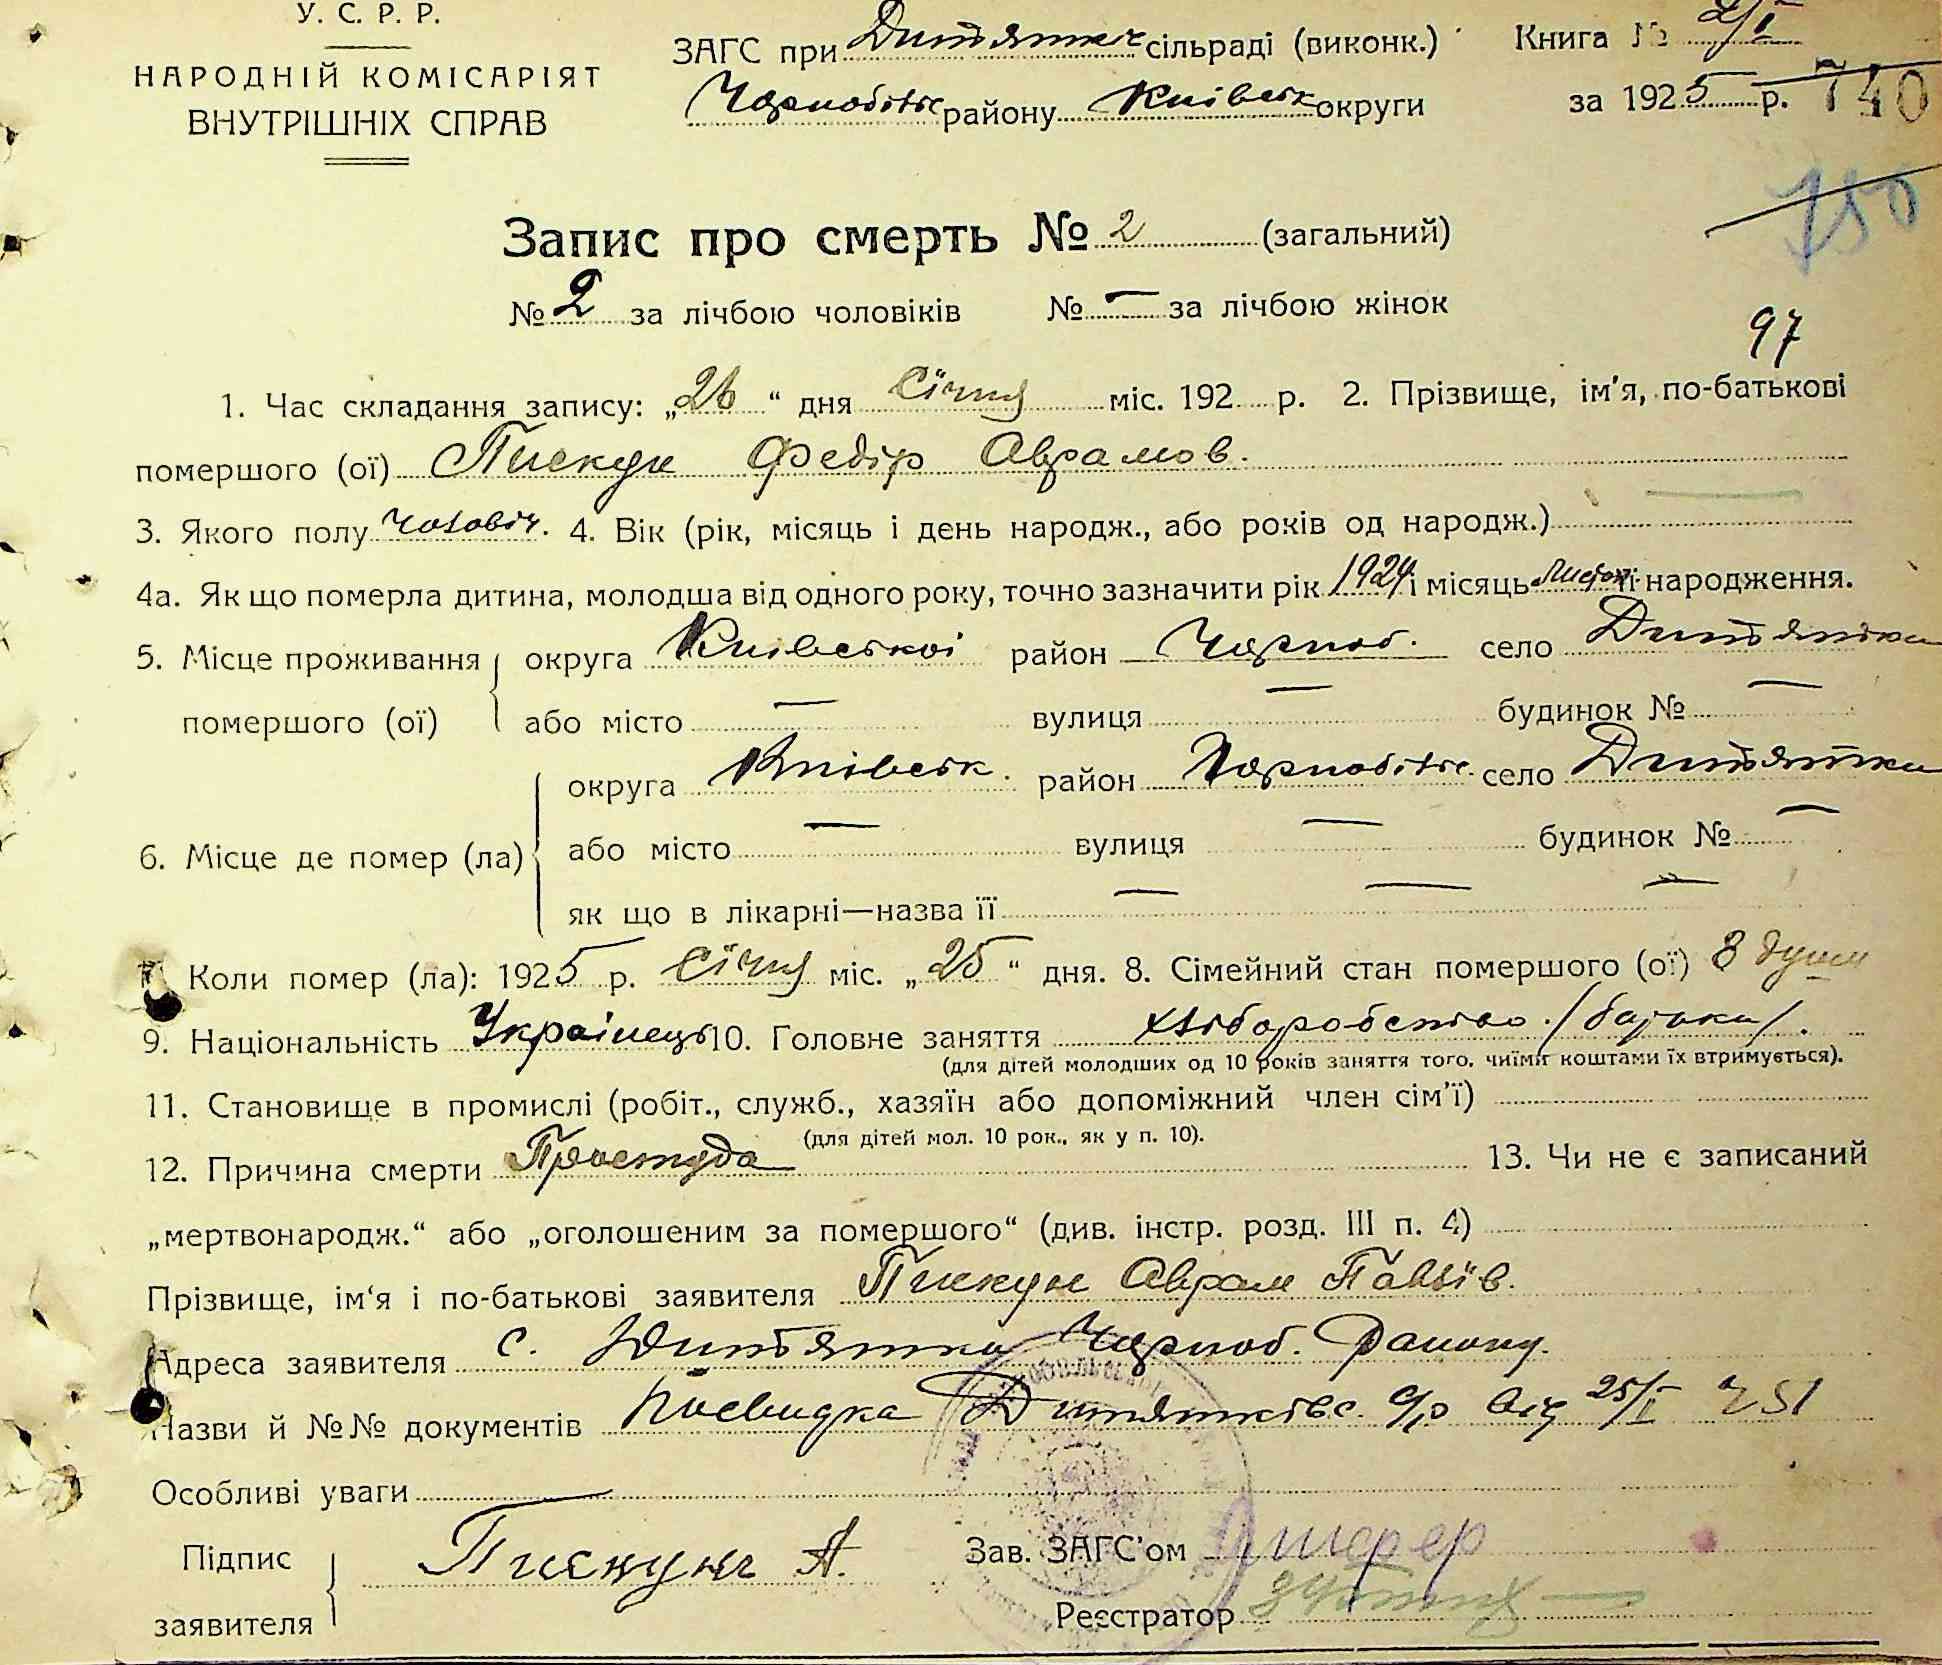 У. С. Р. Р.
НАРОДНІЙ КОМІСАРІЯТ
ВНУТРІШНІХ СПРАВ
ЗАГС при Дитятк. сільраді (виконк.)
Чорнобільс районy Київськ округи
Книга № 2/I
за 1925 р. 740
750
Запис про смерть № 2 (загальний)
№ 2 за лічбою чоловіків № — за лічбою жінок
97
1. Час складання запису: „26“ дня Січня міс. 192 р. 2. Прізвище, ім'я, по-батькові
помершого (ої) Пискун Федір Аврамов.
3. Якого полу чоловіч. 4. Вік (рік, місяць і день народж., або років од народж.)
4а. Як що померла дитина, молодша від одного року, точно зазначити рік 1924 і місяць Листоп. її народження.
5. Місце проживання помершого (ої) округа Київської район Чорноб. село Дитятки
або місто — вулиця — будинок № —
6. Місце де помер (ла) округа Київськ. район Чорнобільс. село Дитятки
або місто — вулиця — будинок № —
як що в лікарні—назва її — — —
7. Коли помер (ла): 1925 р. Січня міс. „25“ дня. 8. Сімейний стан помершого (ої) 8 душ
9. Національність Українець 10. Головне заняття хліборобство /батька/.
(для дітей молодших од 10 років заняття того, чиїми коштами їх втримується).
11. Становище в промислі (робіт., служб., хазяїн або допоміжний член сім'ї)
(для дітей мол. 10 рок., як у п. 10).
12. Причина смерти Простуда 13. Чи не є записаний
„мертвонародж.“ або „оголошеним за помершого“ (див. інстр. розд. III п. 4)
Прізвище, ім'я і по-батькові заявителя Пискун Аврам Павлів.
Адреса заявителя с. Дитятки Чорноб. Району.
Назви й №№ документів Посвидка Дитятківс. с/р від 25/I № 51
Особливі уваги —
Підпис заявителя Пискунъ А.
Зав. ЗАГС'ом
Реєстратор